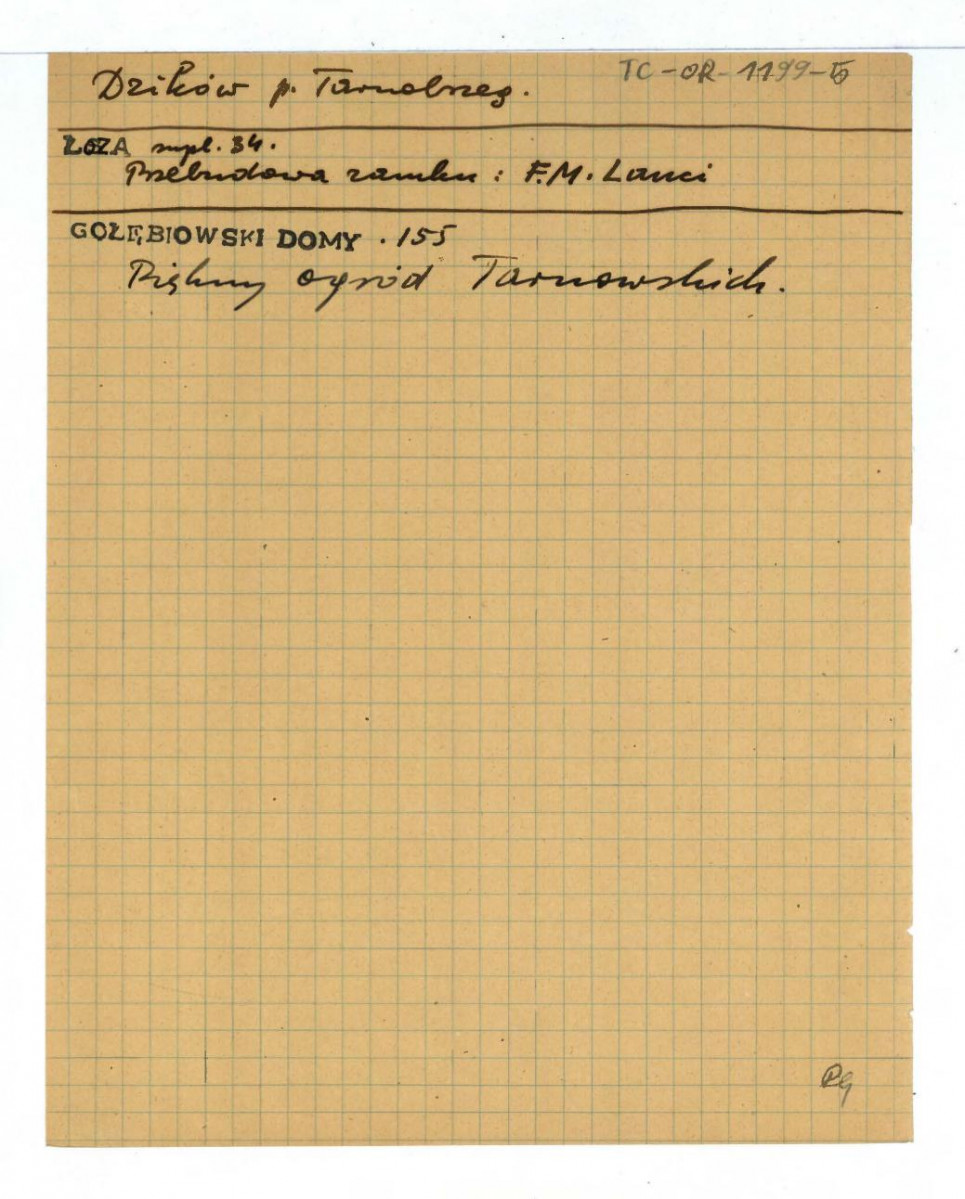 TC-OR-1199-5
Dzików p. Tarnobrzeg.
ŁOZA supl. 34.
Przebudowa zamku : F.M. Lanci
GOŁĘBIOWSKI DOMY . 155
Piękny ogród Tarnowskich.